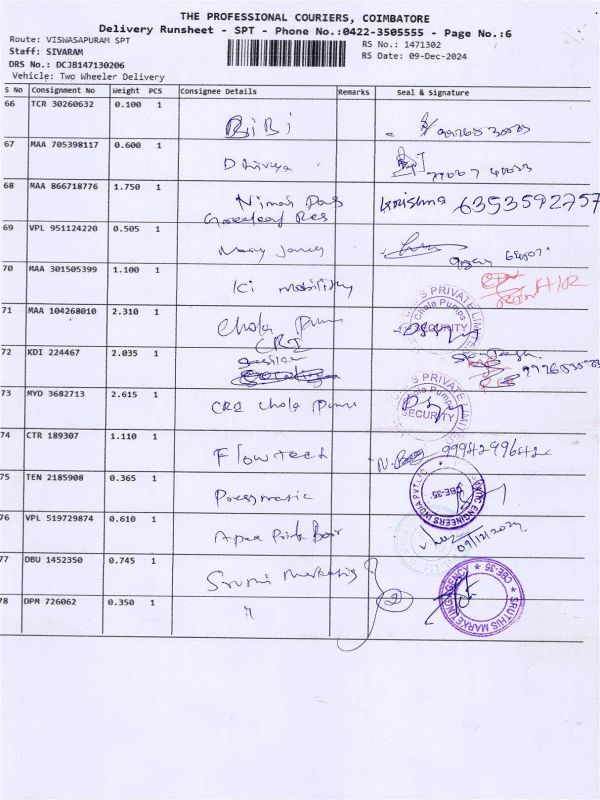 THE PROFESSIONAL COURIERS, COIMBATORE
Delivery Runsheet - SPT - Phone No.:0422-3505555 - Page No.:6
Route: VISWASAPURAM SPT
RS No.: 1471302
Staff: SIVARAM
RS Date: 09-Dec-2024
DRS No.: DCJB147130206
Vehicle: Two Wheeler Delivery
S No Consignment No Weight PCS Consignee Details Remarks Seal & Signature
66 TCR 30260632 0.100 1 BiBi
67 MAA 705398117 0.600 1 Dhivya
68 MAA 866718776 1.750 1 Nimai Das Krishna 6353592757
Greenleaf Res
69 VPL 951124220 0.505 1 Mary James
70 MAA 301505399 1.100 1 ICI mobility
71 MAA 104268010 2.310 1 Chola Pumps
PRIVATE LIMITED Chola Pumps SECURITY
72 KDI 224467 2.035 1 CRI
73 MYD 3682713 2.615 1 CRI Chola Pumps
PRIVATE LIMITED Chola Pumps SECURITY
74 CTR 189307 1.110 1 Flowtech
75 TEN 2185908 0.365 1 Pressmatic
ENGINEERS INDIA PVT.LTD. CBE-35.
76 VPL 519729874 0.610 1 09/12/2024
77 DBU 1452350 0.745 1 Sruthi Marketing
78 DPM 726062 0.350 1 " 2
SRUTHIS MARKETING AGENCY CBE-35